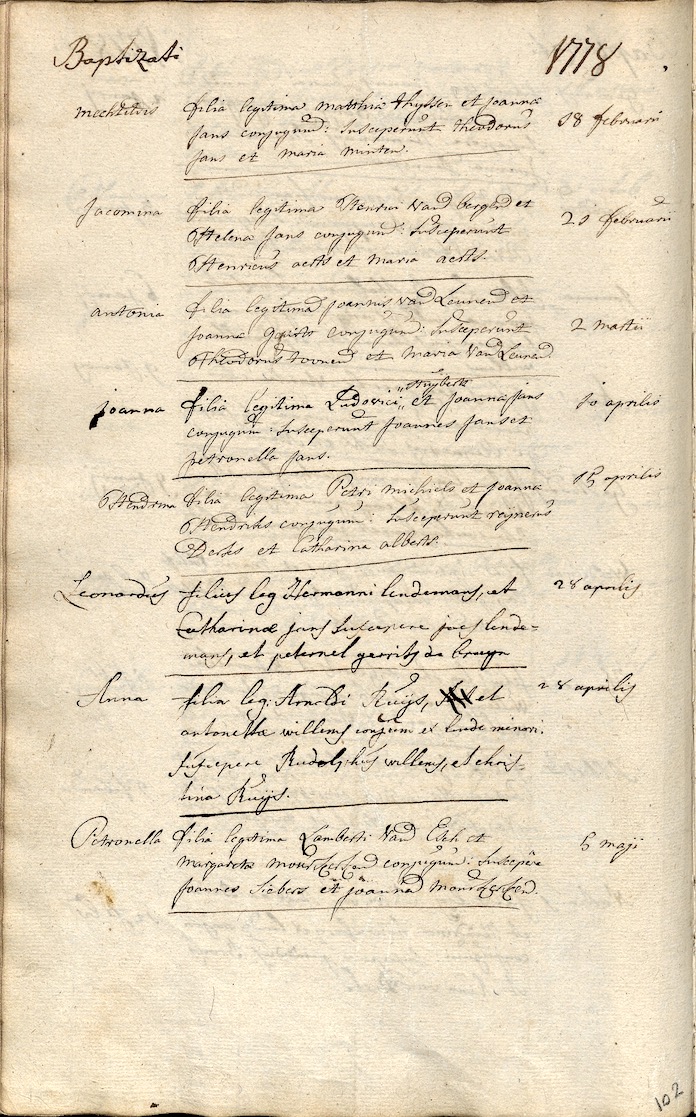 Baptizati 1778
mechtildis filia legitima matthiæ thyssen et joannæ
jans conjugum: susceperunt theodorus 18 februarii
jans et maria minten.
Jacomina filia legitima Henrici Van bergen et
Helena jans conjugum: susceperunt 21 februarii
Henricus aerts et maria aerts.
antonia filia legitima joannis Van Leunen et
joanna conjugum: susceperunt 2 martii
Theodorus toonen et maria Van Leunen
huyberts
joanna filia legitima Ludovici et joanna jans 10 aprilis
conjugum: susceperunt joannes jans et
petronella jans.
Hendrina filia legitima Petri michiels et joanna 15 aprilis
Hendriks conjugum: susceperunt reynerus
Derks et Catharina alberts.
Leonardus filius leg Hermanni lindemans, et 28 aprilis
Catharinæ jans suscepere joës linde=
mans, et peternel gerrits de bruyn
Anna filia leg: Arnoldi Ruijs, et 28 aprilis
antonetta willems conjum ex linde minori.
suscepere Rudolphus willems, et chris
tina Ruijs.
Petronella filia legitima Lamberti Van Esch et
margareta conjugum: suscepere 5 maji
joannes siebers et joanna
102